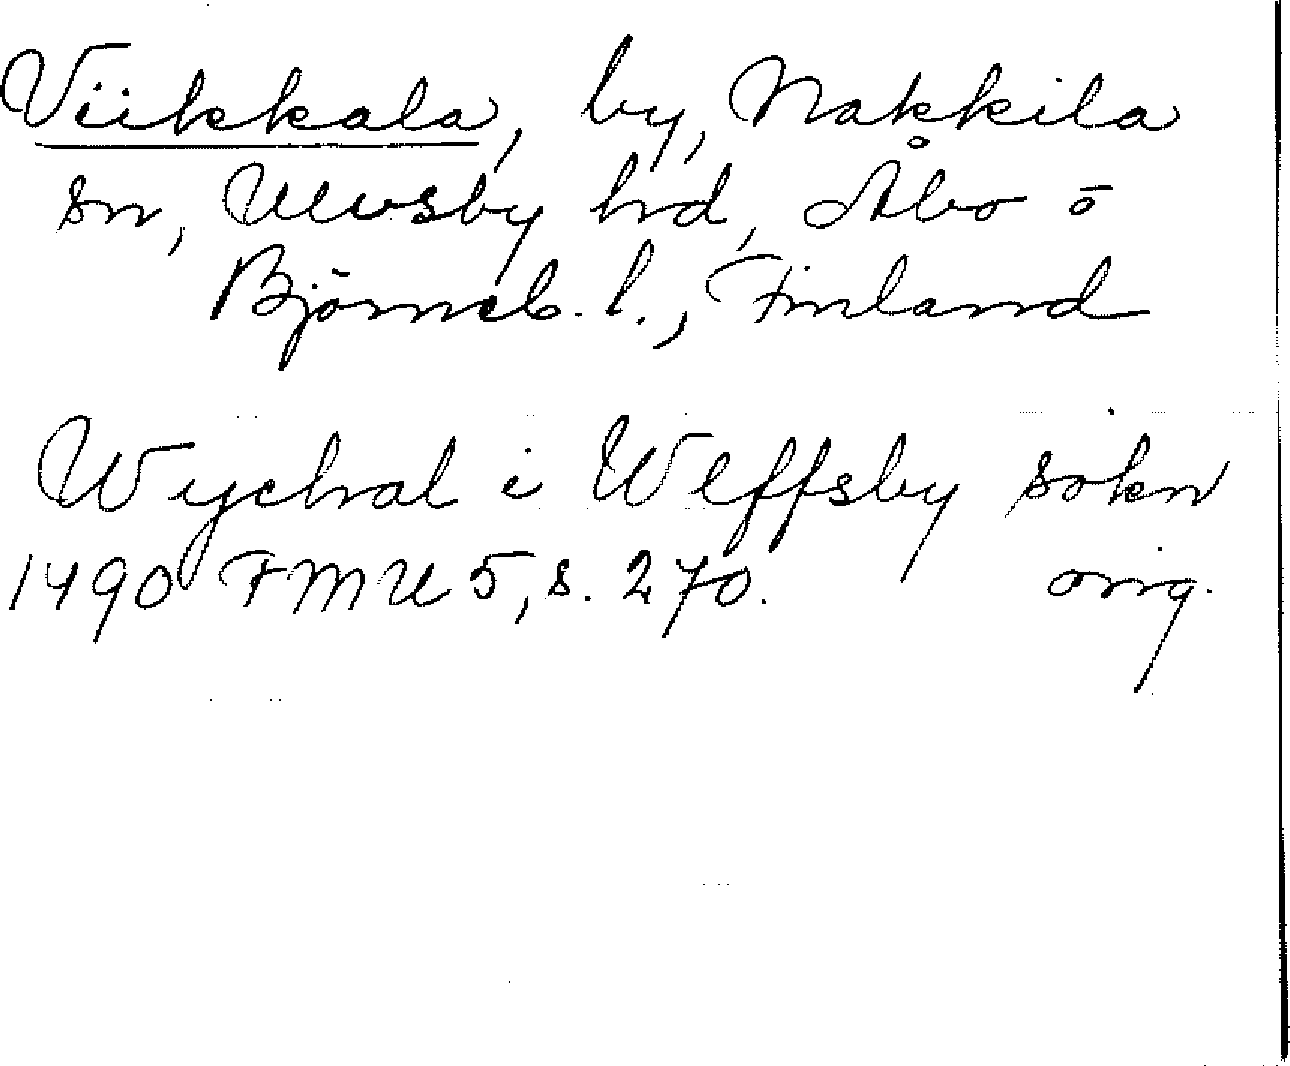 Viikkala, by, Nakkila
sn, Ulvsby hrd, Åbo o
Björneb. l., Finland
Wychal i Wlffsby sokn
1490 FMU 5, s. 270. orig.